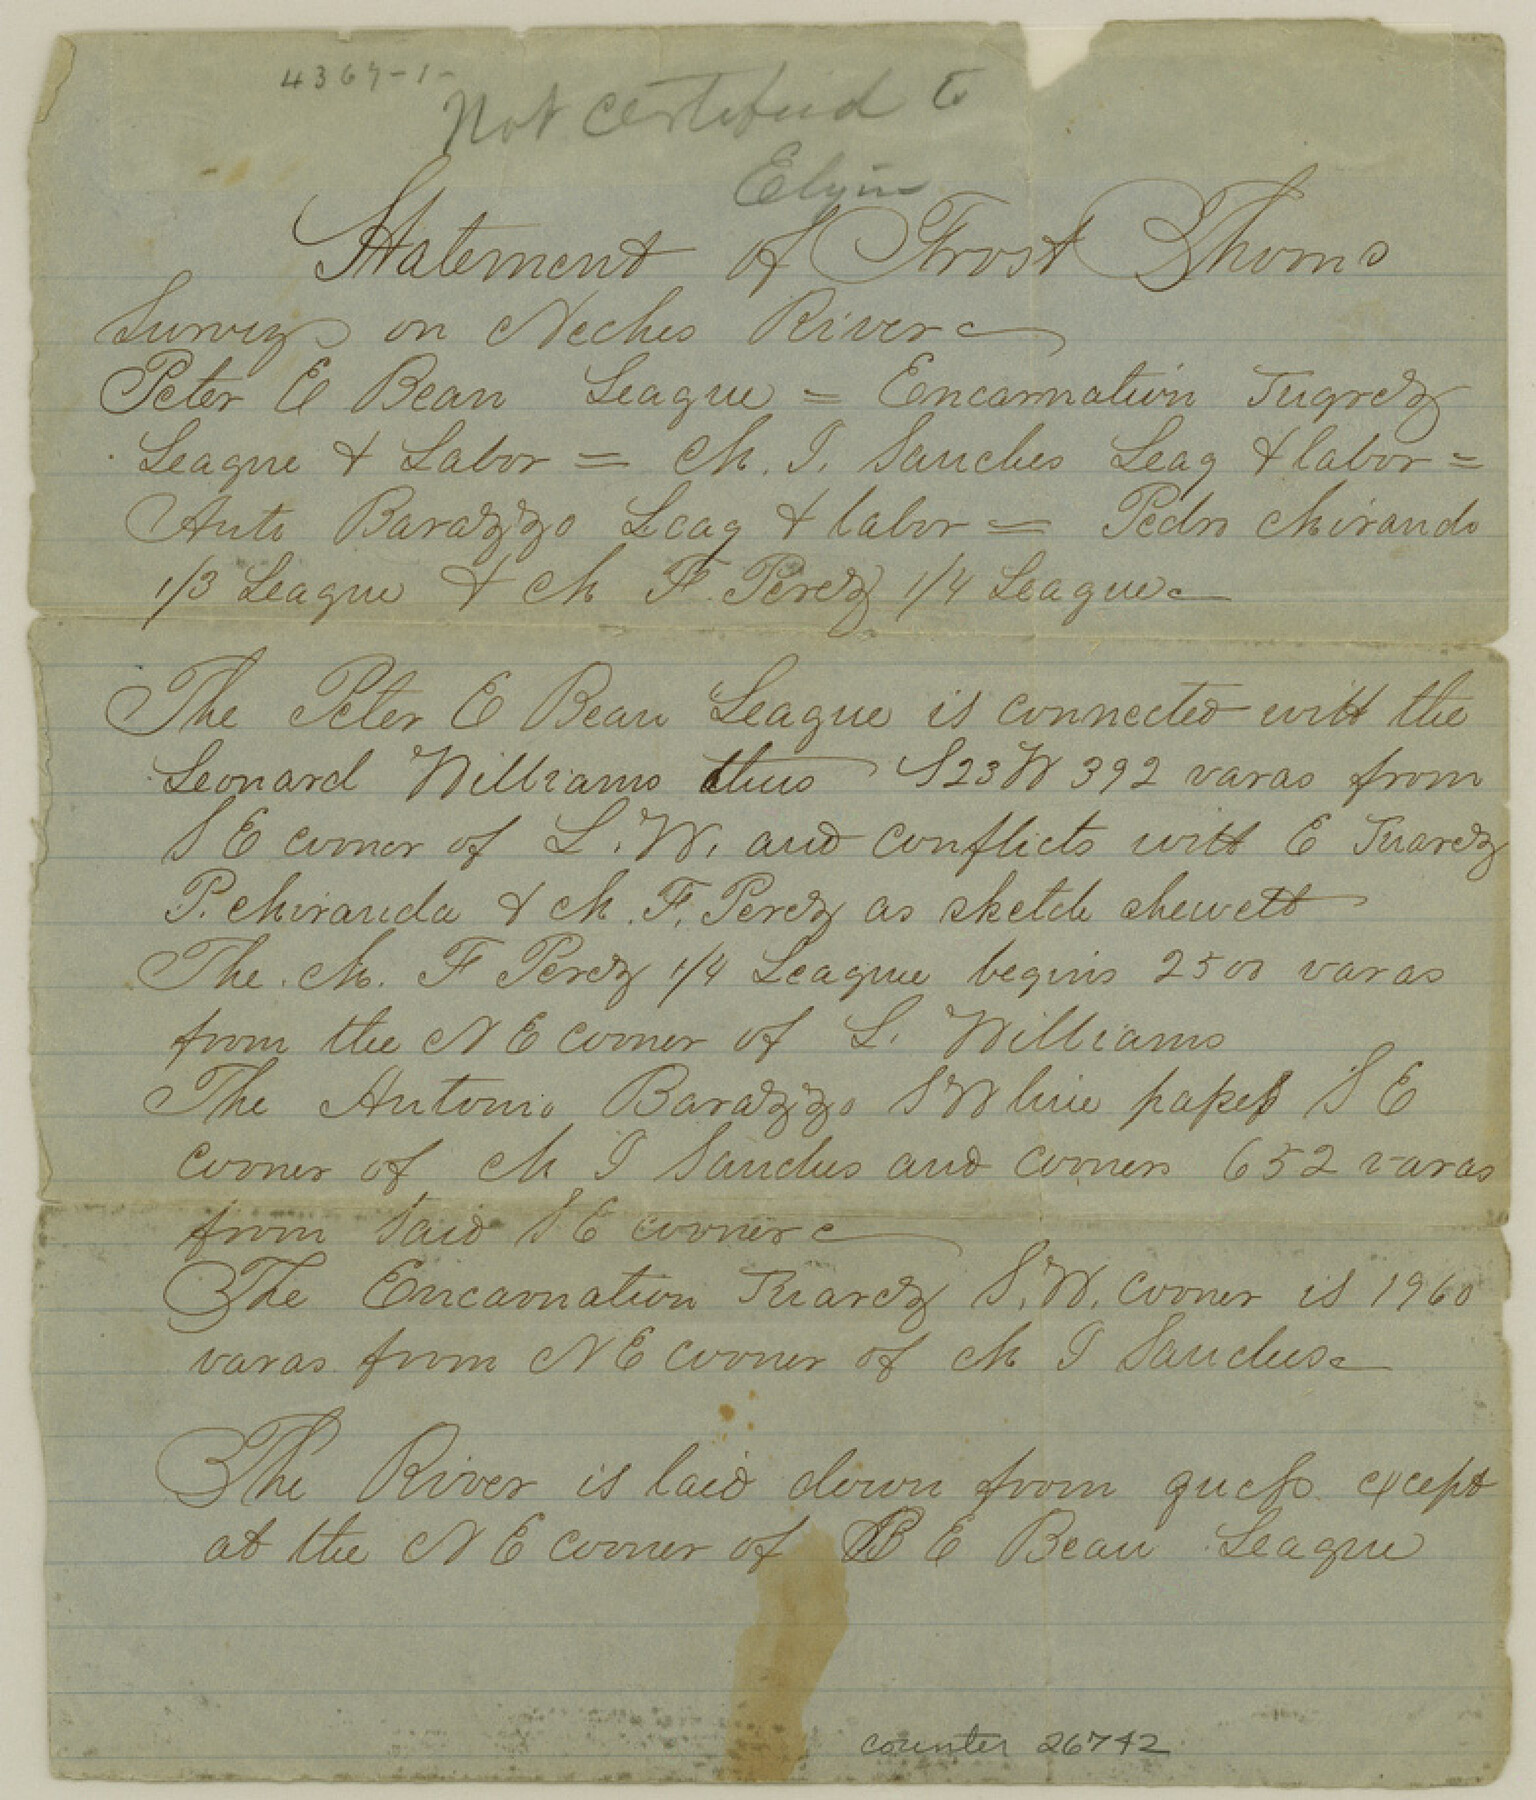 4367-1-
Not certified to
Elgin
Statement of Frost Thoms
Surveys on Neches River
Peter E Bean League = Encarnation Jugrez
League & Labor = M. I. Sanches Leag & labor =
Anto Barazzo Leag & labor = Pedro Mirando
1/3 League & M F. Perez 1/4 League
The Peter E Bean League is connected with the
Leonard Williams thus S23W 392 varas from
S E corner of L. W. and conflicts with E Juarez
P. Miranda & M. F. Perez as sketch sheweth
The M. F Perez 1/4 League begins 2500 varas
from the N E corner of L. Williams
The Antonio Barazzo S W line passes S E
corner of M I Sanches and corners 652 varas
from said S E corner
The Encarnation Juarez S. W. corner is 1960
varas from N E corner of M I Sanches
The River is laid down from guess except
at the N E corner of P E Bean League
counter 26742